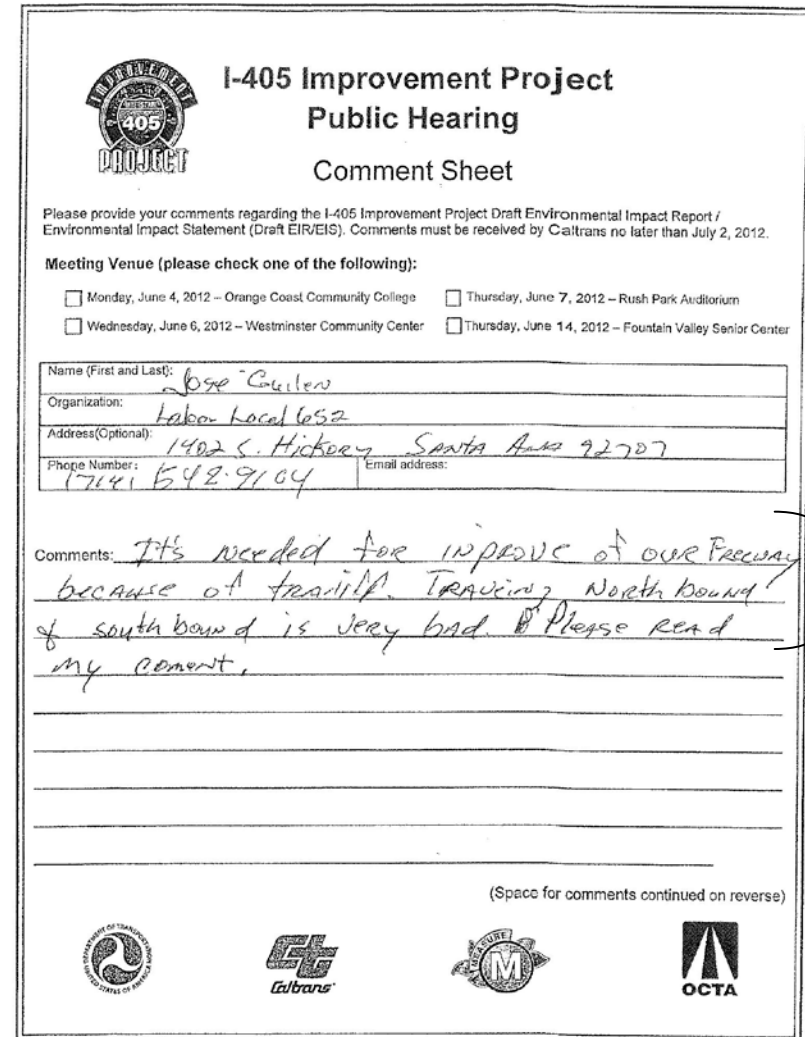 IMPROVEMENT
405
PROJECT
I-405 Improvement Project
Public Hearing
Comment Sheet
Please provide your comments regarding the I-405 Improvement Project Draft Environmental Impact Report /
Environmental Impact Statement (Draft EIR/EIS). Comments must be received by Caltrans no later than July 2, 2012.
Meeting Venue (please check one of the following):
Monday, June 4, 2012 – Orange Coast Community College
Thursday, June 7, 2012 – Rush Park Auditorium
Wednesday, June 6, 2012 – Westminster Community Center
Thursday, June 14, 2012 – Fountain Valley Senior Center
Name (First and Last): Jose Guilen
Organization: Labor Local 652
Address(Optional): 1402 S. Hickory Santa Ana 92707
Phone Number: (714) 542-9104
Email address:
Comments: It's needed for inprove of our Freeway
because of
Traveing North bound
& south bound is very bad. Please read
my coment.
(Space for comments continued on reverse)
DEPARTMENT OF TRANSPORTATION
UNITED STATES OF AMERICA
Caltrans
MEASURE
M
OCTA